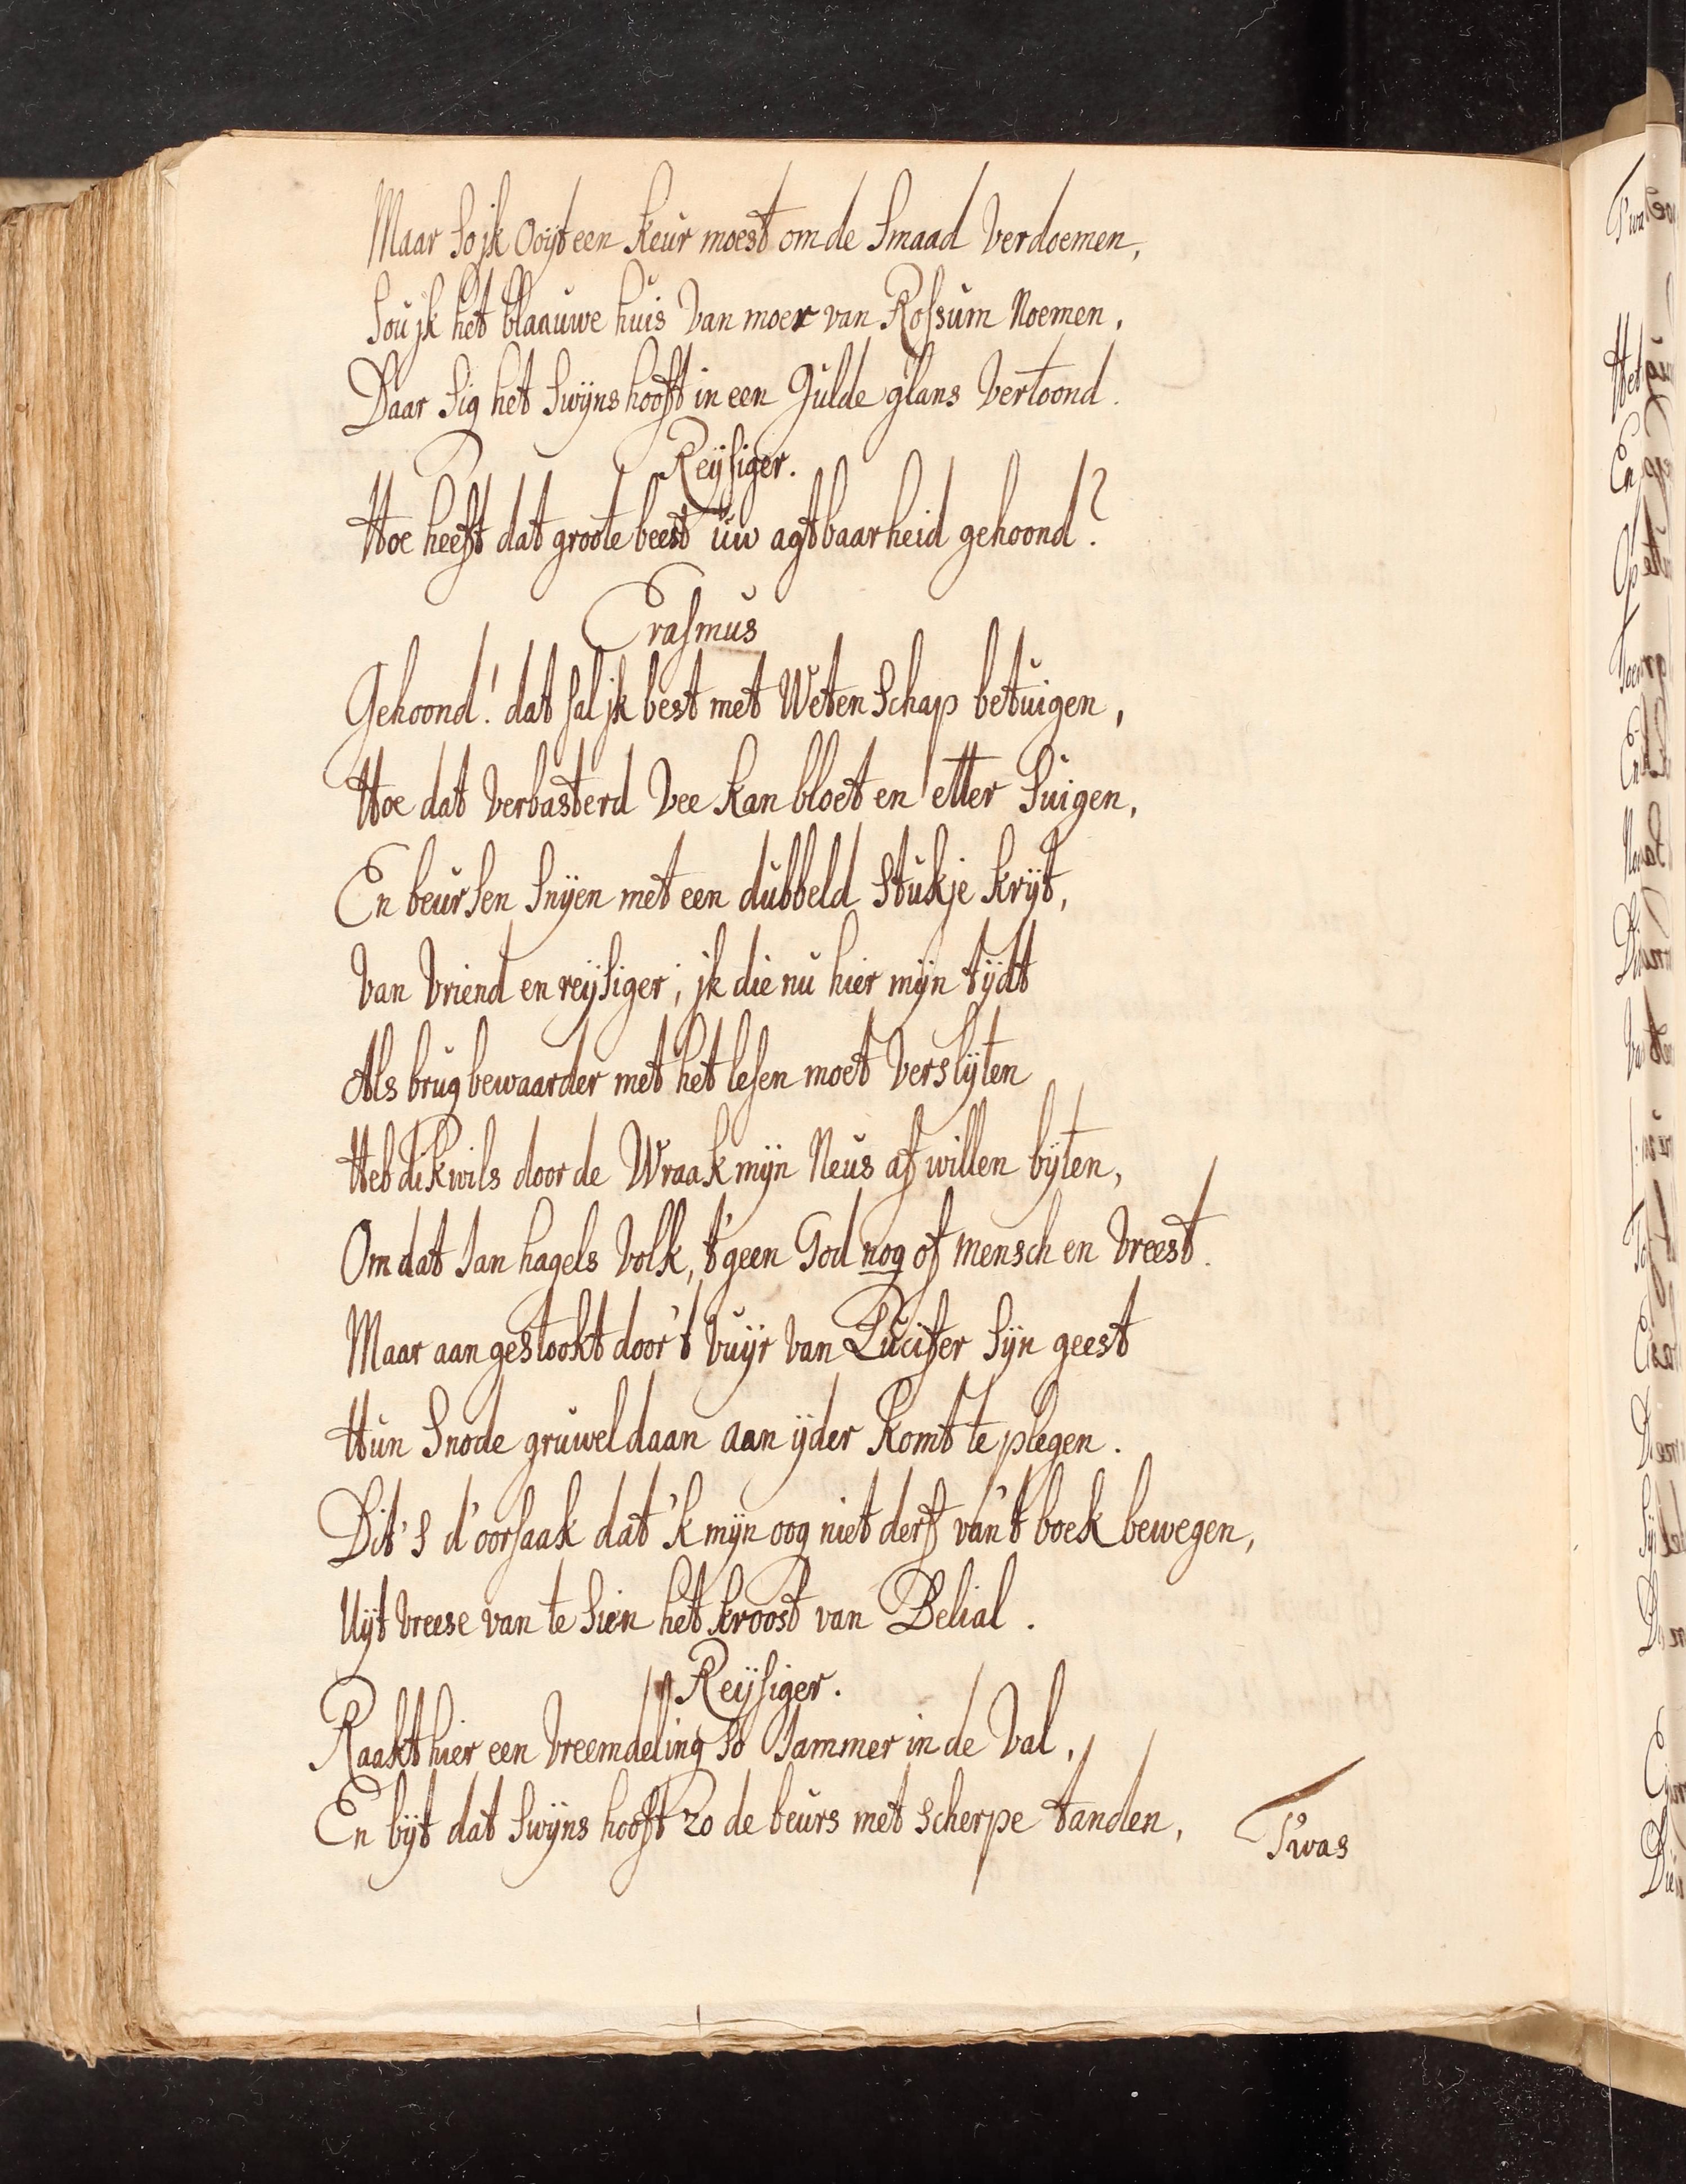 Maar so jk Ooijt een keur moest om de Smaad Verdoemen,
Sou jk het blaauwe huis Van moer van Rossum Noemen,
Daar Sig het Swijns hooft in een Gulde glans Vertoond.
Reijsiger.
Hoe heeft dat groote beest uw agtbaarheid gehoond?
Erasmus
Gehoond! dat sal jk best met Weten Schap betuigen,
Hoe dat Verbasterd Vee kan bloet en etter Suigen,
En beursen Snijen met een dubbeld Stukje krijt,
Van Vriend en reijsiger; jk die nu hier mijn tijdt
Als brug bewaarder met het lesen moet Verslijten
Heb dikwils door de Wraak mijn Neus af willen bijten,
Om dat Jan hagels Volk, t'geen God nog of mensch en Vreest.
Maar aan gestookt door't Vuijr Van Lucifer Sijn geest
Hun Snode gruweldaan aan ijder komt te plegen.
Dit's d'oorsaak dat 'k mijn oog niet derf van't boek bewegen,
Uijt Vreese van te Sien het kroost van Belial.
Reijsiger.
Raakt hier een Vreemdeling so Jammer in de Val,
En bijt dat Swijns hooft zo de beurs met scherpe tanden,
T'was